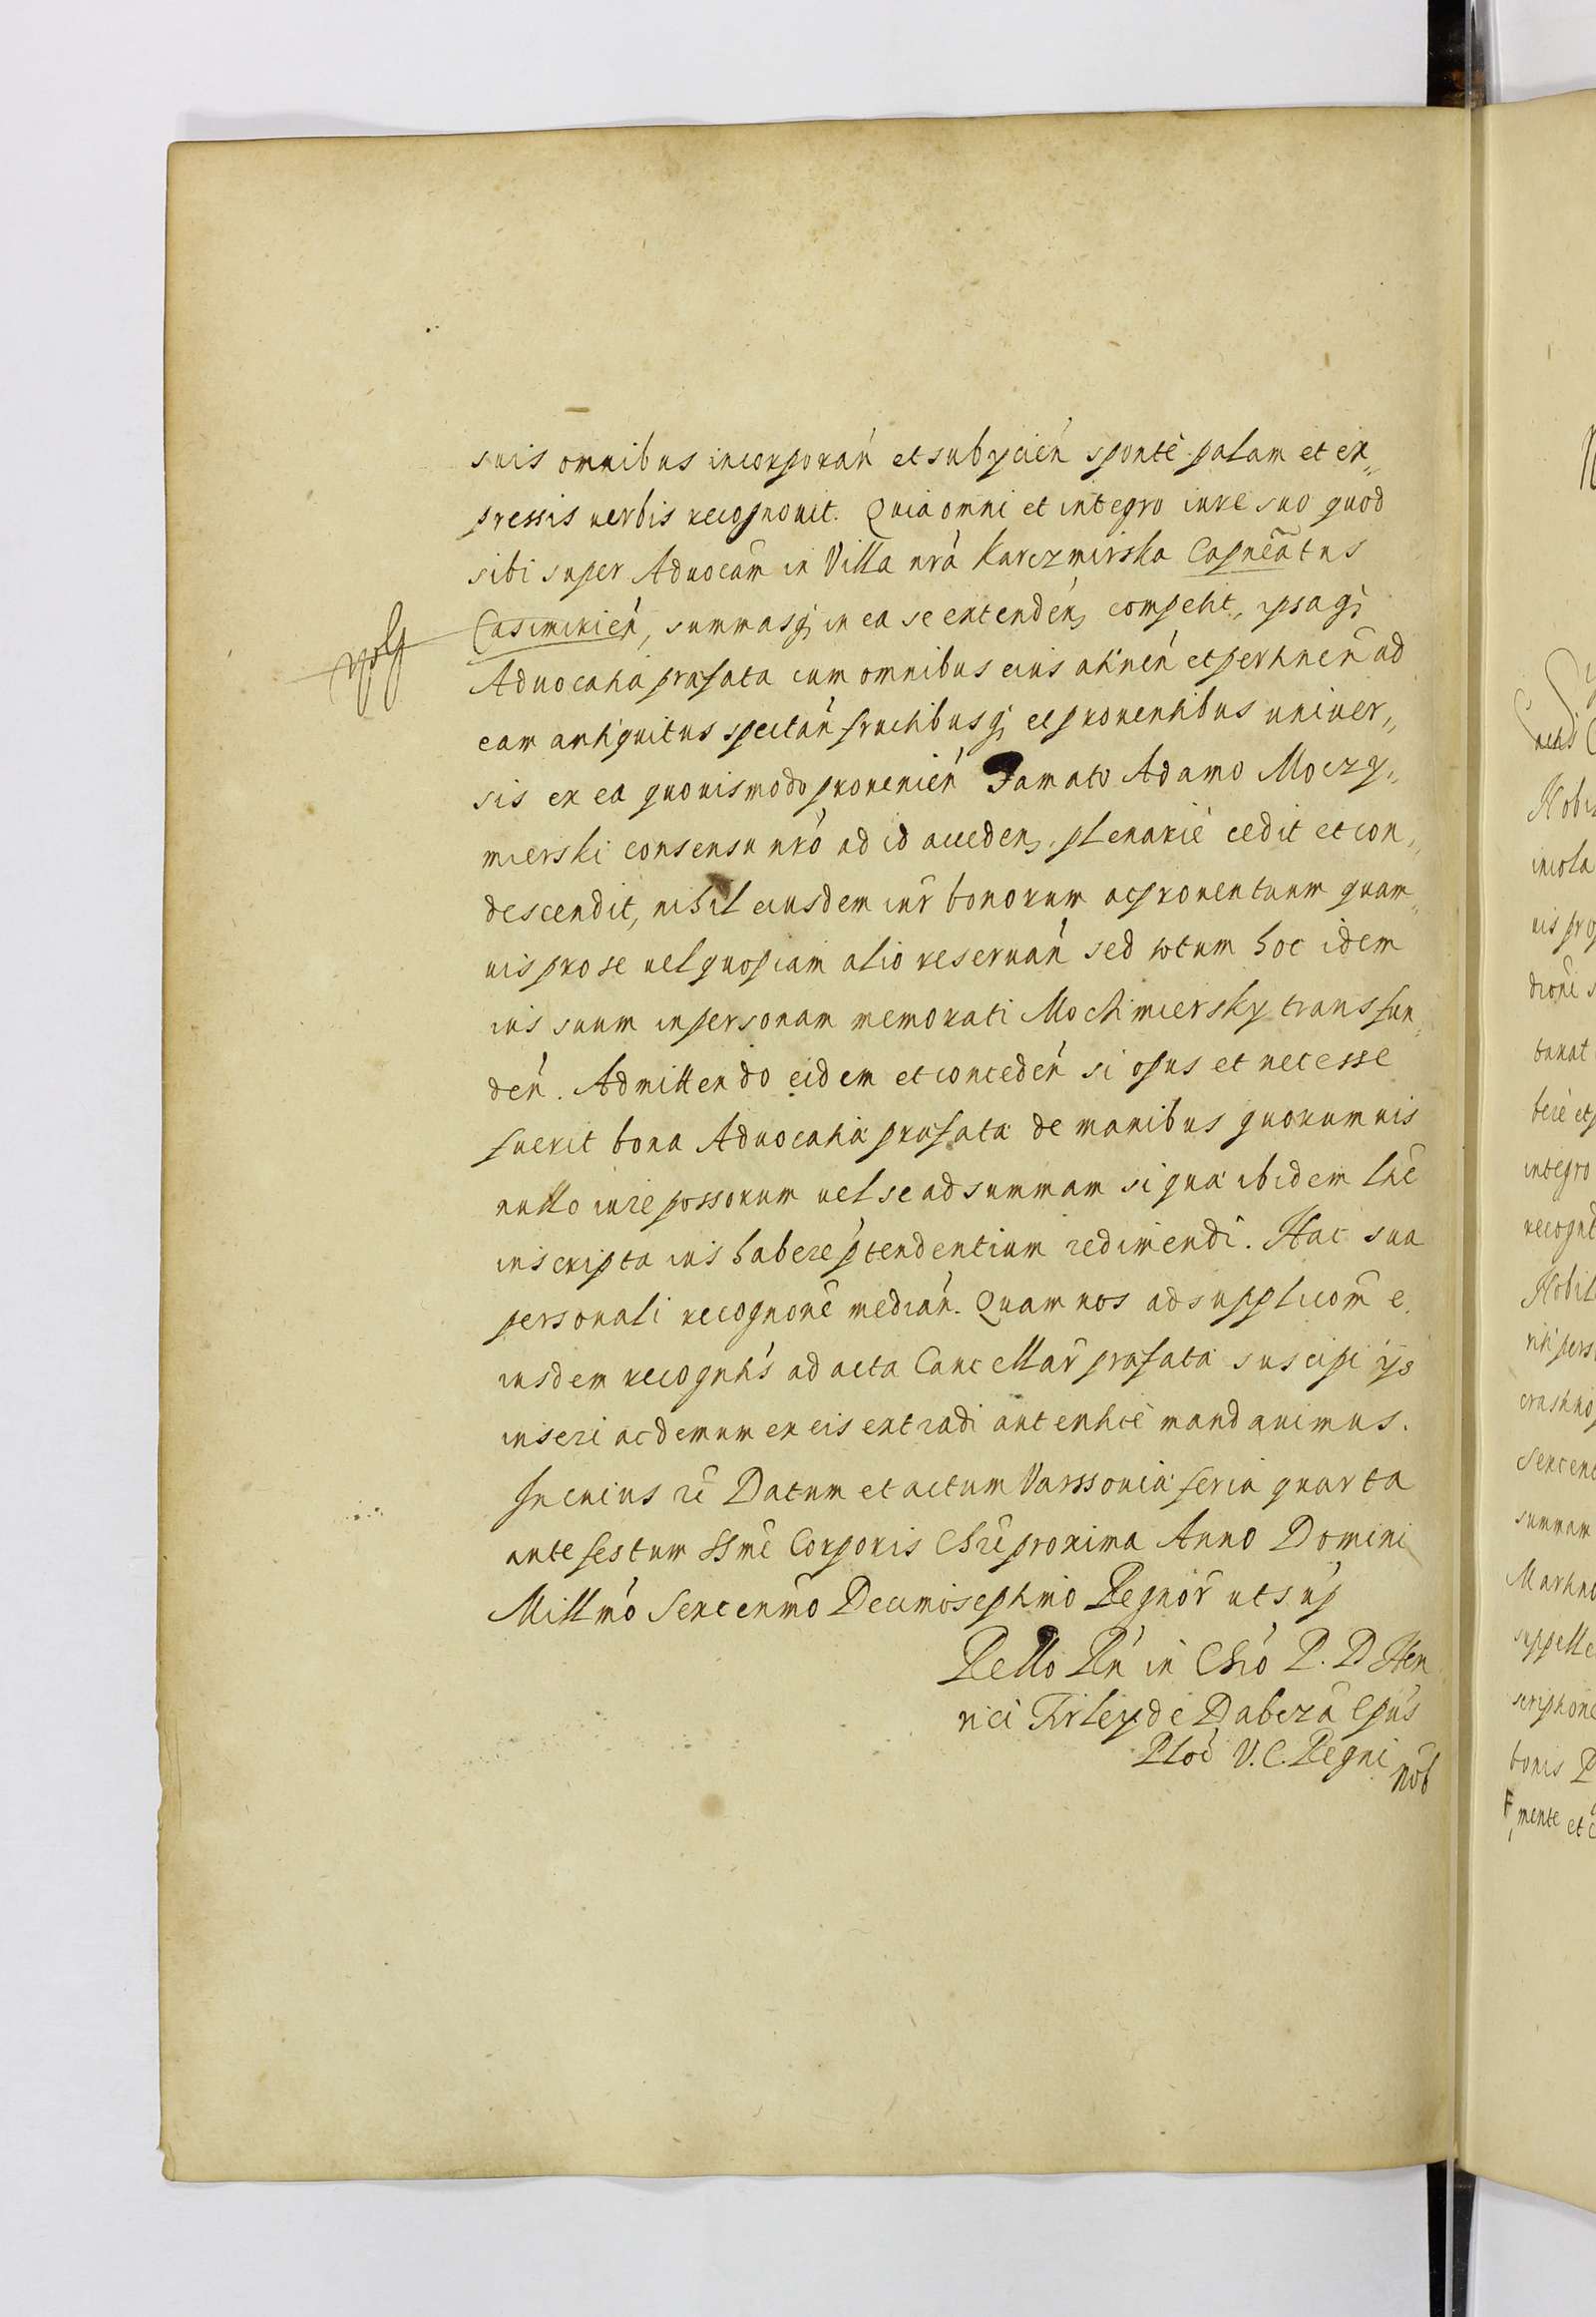 suis omnibus incorporań et subyciéń sponté palam et ex„
pressis uerbis recognouit. Quia omni et integro iure suo quod
sibi super Aduocãm in Villa nrá Karczmirska Capnẽatus
Casimirień, summasq; in ea se extendéń competit, ipsaq;
Aduocatia præfata cum omnibus eius attineń et pertineñ ad
eam antiquitus spectań fructibusq; et prouentibus uniuer„
sis ex ea quouismodo prouenień Famato Adamo Moczy„
mierski consensu nró ad id acceden, plenarié cedit et con„
descendit, nihil eiusdem iur̃ bonorum ac prouentuum quam„
uis pro se uel quopiam alio reseruań sed totum hoc idem
ius suum in personam memorati Mochmiersky transfun„
deń. Admittendo eidem et concedéń si opus et necesse
fuerit bona Aduocatiæ præfatæ de manibus quorumuis
nullo iure possorum uel se ad summam si quæ ibidem lité
inscripta ius habere ṕtendentium redimendi. Hac sua
personali recognoné mediań. Quam nos ad supplicom̃ e„
iusdem recogntis ad acta Cancellar̃ præfatæ suscipi ijs
inseri ac demum ex eis extradi autenticé mandauimus.
In cuius rei Datum et actum Varssouiæ feria quarta
ante festum Ssmi Corporis Chri proxima Anno Domini
Millmó Sexcenm̃o Decimoseptimo Regnor̃ ut suṕ
Rello Rń in Chró P. D Hen
rici Firley de Dabrza Epús
Ploć V. C. Regni
nob̃